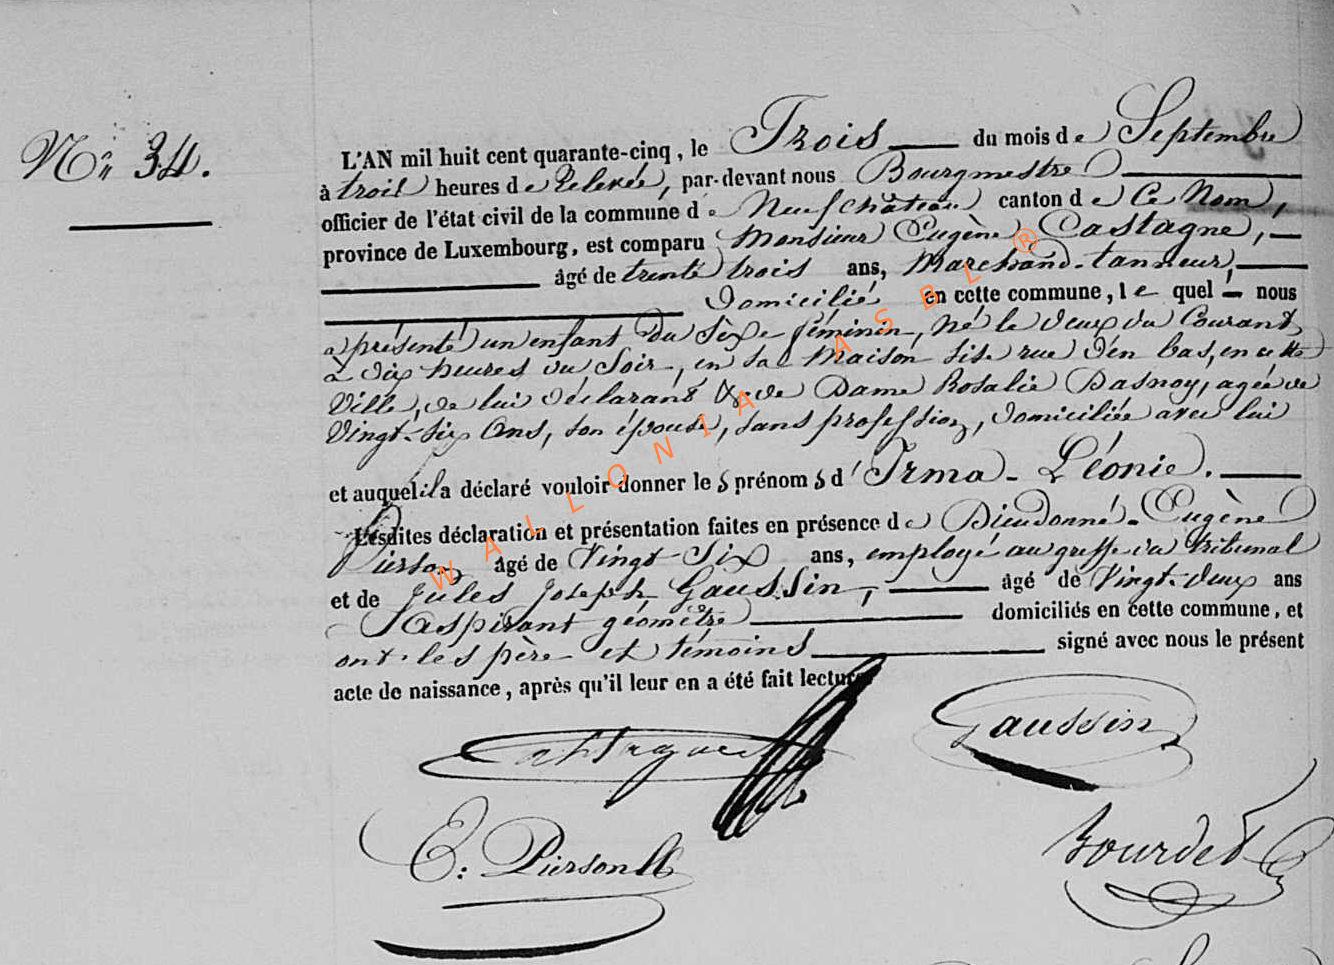 Nº 34.
L'AN mil huit cent quarante-cinq, le Trois du mois de Septembre
à trois heures de Relevée, par-devant nous Bourgmestre
officier de l'état civil de la commune de Neufchâteau canton de Ce Nom,
province de Luxembourg, est comparu Monsieur Eugène Castagne,
âgé de trente trois ans, Marchand-tanneur,
Domicilié en cette commune, le quel nous
a présenté un enfant du Sèxe féminin, né le deux du Courant
à dix heures du Soir, en sa Maison sise rue d'en bas, en cette
Ville, de lui déclarant & de Dame Rosalie Dasnoy, agée de
Vingt-six Ans, son épouse, sans profession, domiciliée avec lui
et auquel il a déclaré vouloir donner les prénoms d'Irma-Léonie.
Lesdites déclaration et présentation faites en présence de Dieudonné-Eugène
Pierson, âgé de Vingt Six ans, employé au greffe du tribunal
et de Jules Joseph Gaussin, âgé de Vingt-deux ans
aspirant géomètre domiciliés en cette commune, et
ont les père et témoins signé avec nous le présent
acte de naissance, après qu'il leur en a été fait lecture
Castagne
Gaussin
E. Pierson
Bourdet
WALLONIA ASBL ®